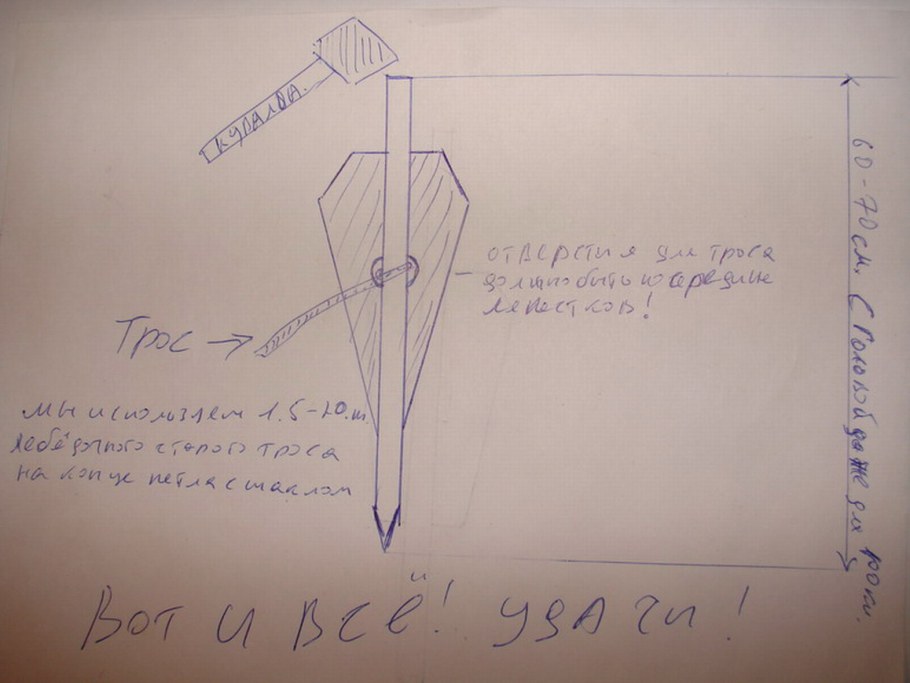 КУВАЛДА.
отверстия для троса
должно быть по середине
лепестков!
Трос
мы используем 1.5-2.0.м.
лебёдочного старого троса
на конце петла с шаклом
60-70 см. С Головой даже для
Вот и всё! УДАЧИ!